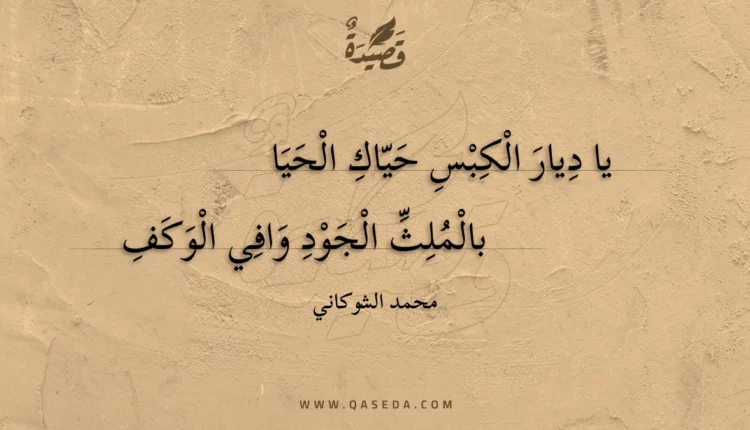 قَصِيْدَةٌ
يا دِيارَ الْكِبْسِ حَيّاكِ الْحَيَا
بالْمُلِثِّ الْجَوْدِ وَافِي الْوَكَفِ
محمد الشوكاني
WWW.QASEDA.COM